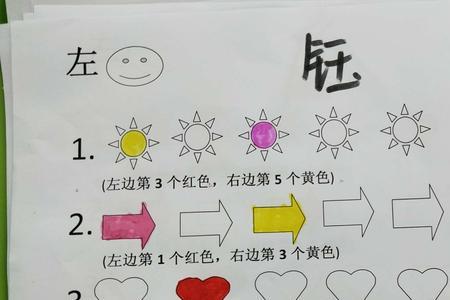 左
钰
1.
(左边第 3 个红色，右边第 5 个黄色)
2.
(左边第 1 个红色，右边第 3 个黄色)